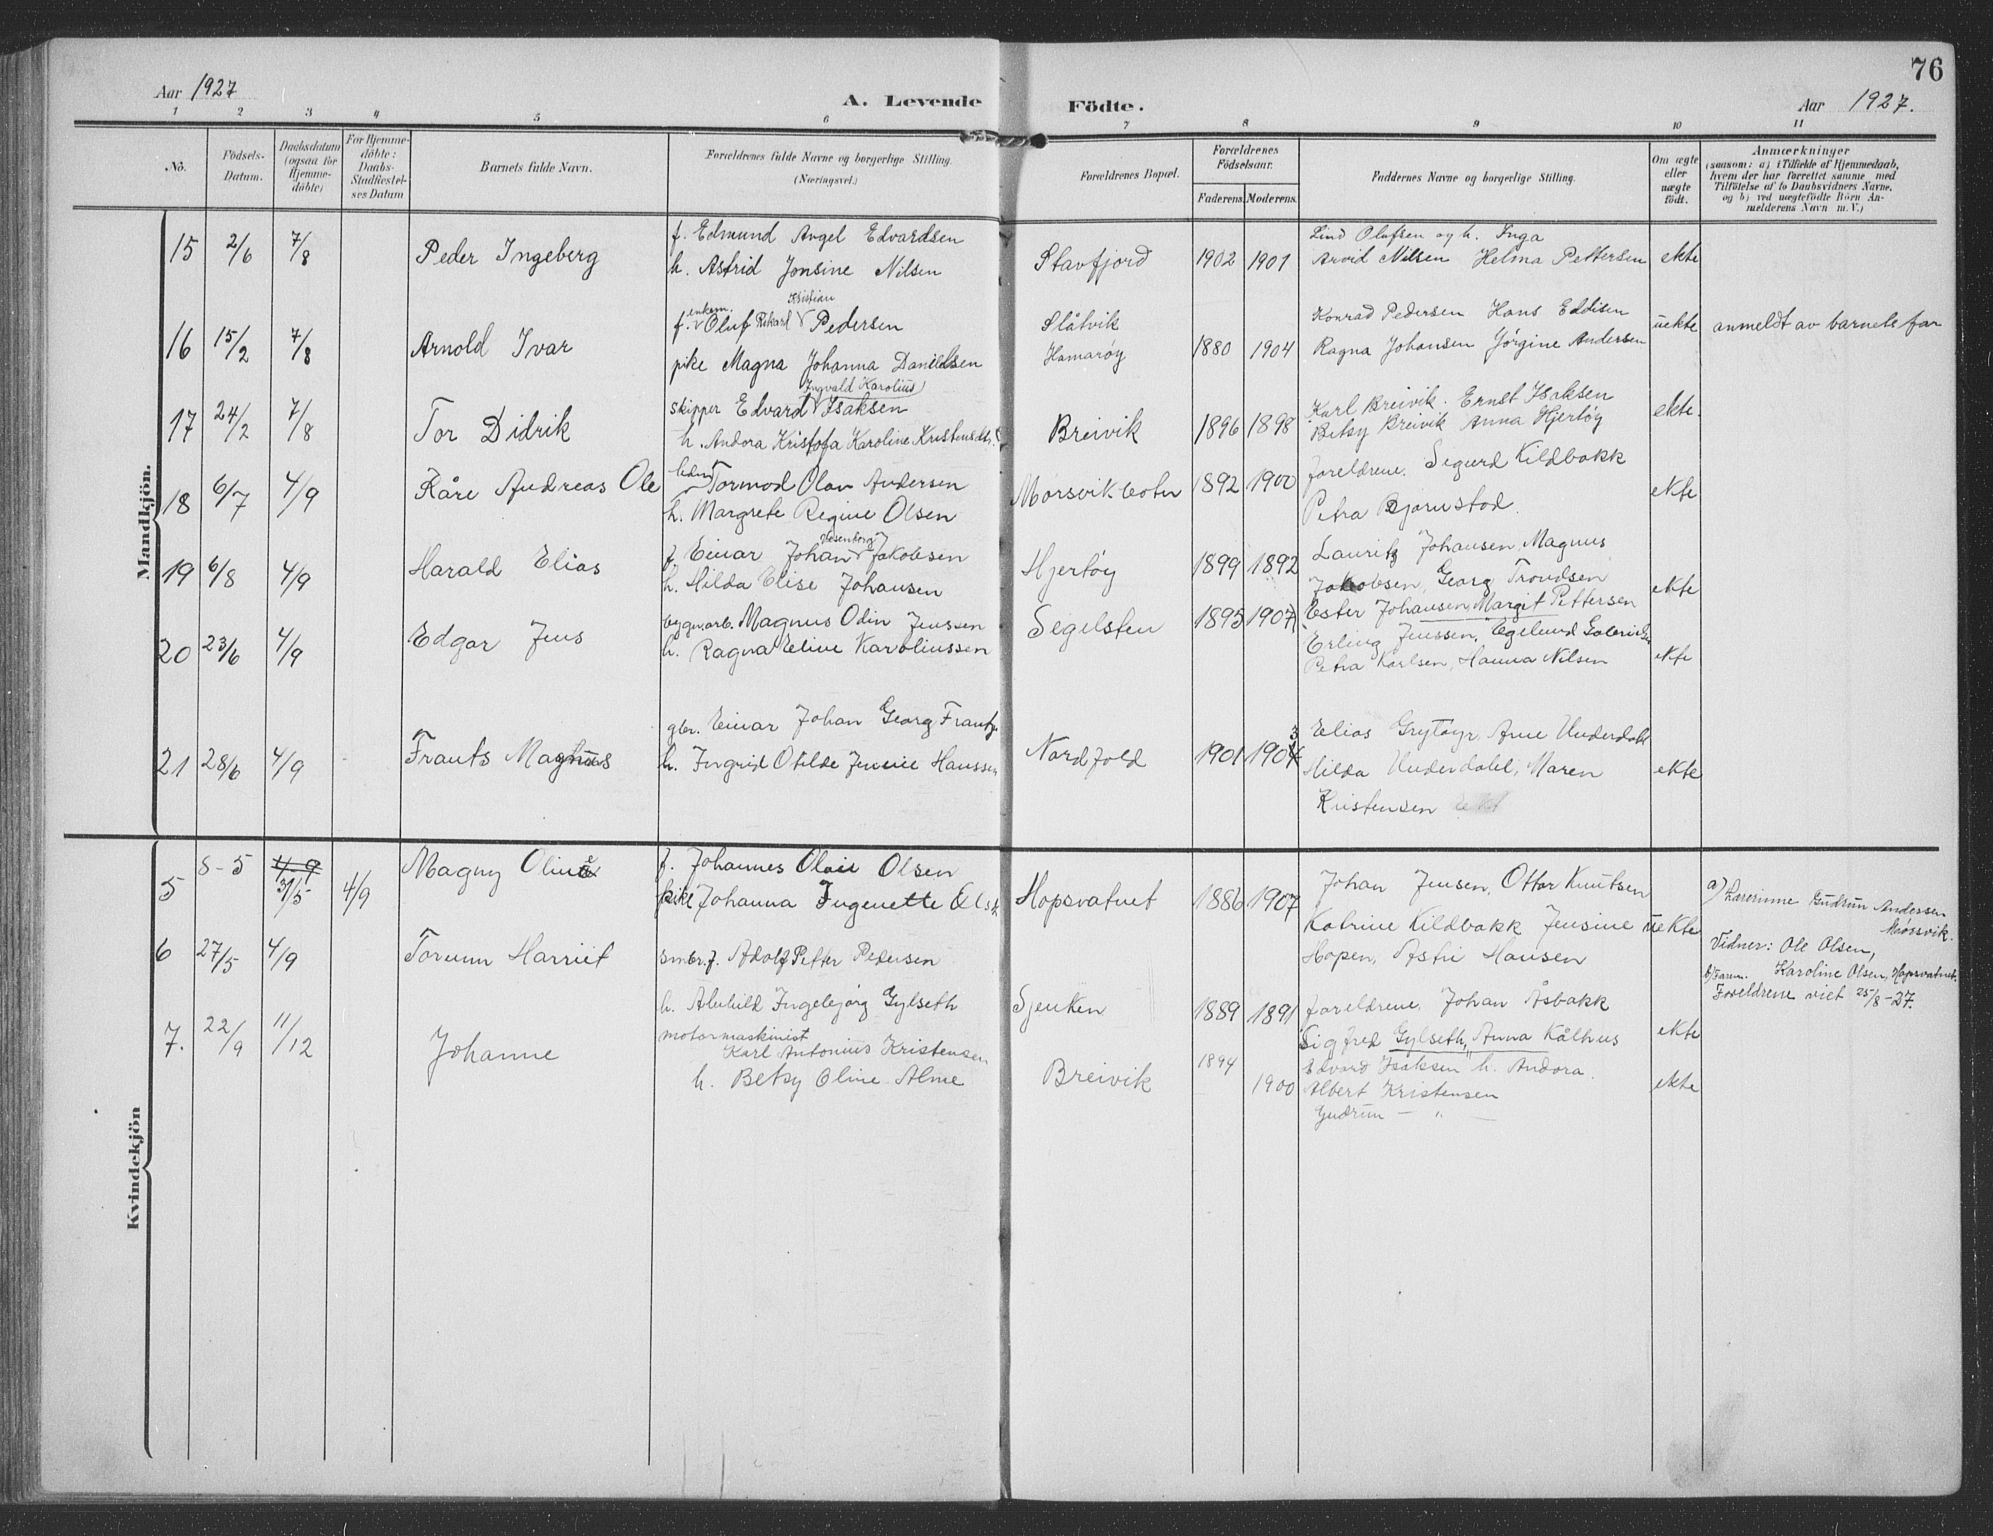 76
Aar 1927
A. Levende Födte.
Aar 1927.
1 2 3 4 5 6 7 8 9 10 11
No.
Födsels-Datum.
Daabsdatum (ogsaa for Hjemme-döbte)
For Hjemme-döbte: Daabs-Stadfæstel-ses Datum
Barnets fulde Navn.
Forældrenes fulde Navne og borgerlige Stilling.
(Næringsvei.)
Forældrenes Bopæl.
Forældrenes Födselsaar.
Faderens. Moderens.
Faddernes Navne og borgerlige Stilling.
Om ægte eller uægte födt.
Anmærkninger
(saasom: a) i Tilfælde af Hjemmedaab,
hvem der har forrettet samme med
Tilföielse af to Daabsvidners Navne,
og b) ved uægtefödte Börn An-
melderens Navn m. V.)
Mandkjön.
15 2/6 7/8 Peder Ingeberg
f. Edmund Angel Edvardsen
h. Astrid Jonsine Nilsen
Stavfjord 1902 1901
Lind Olufsen og h. Inga
Arvid Nilsen Helma Pettersen ekte
16 15/2 7/8 Arnold Ivar
f. enkem. Oluf Rikard Kristian Pedersen
pike Magna Johanna Danielsen
Slåtvik
Hamarøy 1880 1904
Konrad Pedersen Hans Eddisen
Ragna Johansen Jørgine Andersen
uekte anmeldt av barnets far
17 24/2 7/8 Tor Didrik
skipper Edvard Ingvald Karolius Isaksen
h. Andora Kristofa Karoline Kristensdtr.
Breivik 1896 1898
Karl Breivik. Ernst Isaksen
Betsy Breivik Anna Hjertøy
ekte.
18 6/7 4/9 Kåre Andreas Ole
Tormod Olav Andersen
h. Margrete Regine Olsen
Morsvikboten 1892 1900
foreldrene. Sigurd Kildbakk
Petra Bjørnstad.
ekte
19 6/8 4/9 Harald Elias
f. Einar Johan Rosenborg Jakobsen
h. Hilda Elise Johansen
Hjertøy 1899 1892
Lauritz Johansen, Magnus
Jakobsen, Georg Trondsen
Ester Johansen, Margit Pettersen
ekte
20 23/6 4/9 Edgar Jens
bygn.arb. Magnus Odin Jenssen
h. Ragna Eline Karoliussen
Segelsten 1895 1907
Erling Jenssen, Egelund
Petra Karlsen, Hanna Nilsen
ekte
21 28/6 4/9 Frants Magnus
gbr. Einar Johan Georg Frantz
h. Ingrid Otilde Jennie Hanssen
Nordfold 1901 1903
Elias Grytøyr, Arne Underdahl
Hilda Underdahl, Maren
Kristensen
ekte
Kvindekjön
5 8-5 4-9 31/5 4/9 Magny Oline
f. Johannes Olai Olsen
pike Johanna Ingenette
Hopsvatnet 1886 1907
Johan Jensen, Ottar Knutsen
Katrine Kildbakk Jensine
Hopen, Astri Hansen
uekte
a) Lærerinne Gudrun Andersen
Mørsvik.
Vidner: Ole Olsen,
Karoline Olsen, Hopsvatnet.
b) Faren.
Foreldrene viet 25/8-27.
6 27/5 4/9 Torunn Harriet
småbr. f. Adolf Petter Pedersen
h. Alvhild Ingebjørg Gylseth
Sjenken 1889 1891
foreldrene, Johan Åsbakk
Sigfred Gylseth, Anna Kålhus
ekte
7. 22/9 11/12 Johanne
motormaskinist
Karl Antonius Kristensen
h. Betsy Oline Alme
Breivik 1894 1900
Edvard Isaksen h. Andora.
Albert Kristensen
Gudrun — " —
ekte